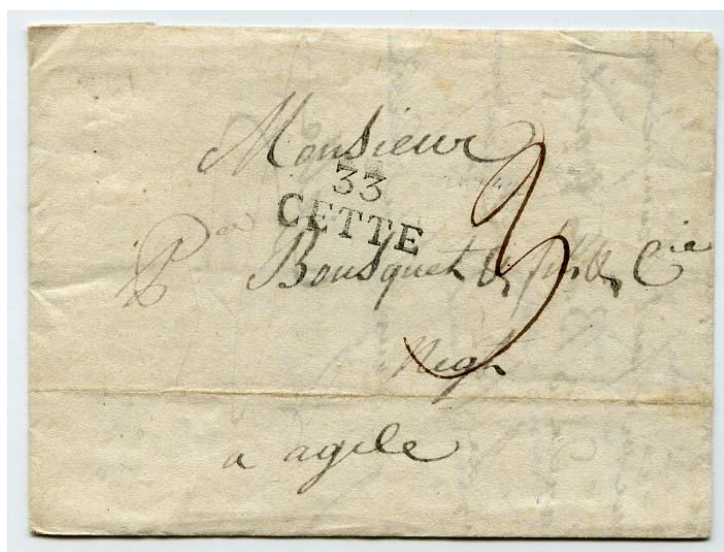 Monsieur
33
CETTE
Pre Bousquet & fils & Cie
3
Negt
a agde